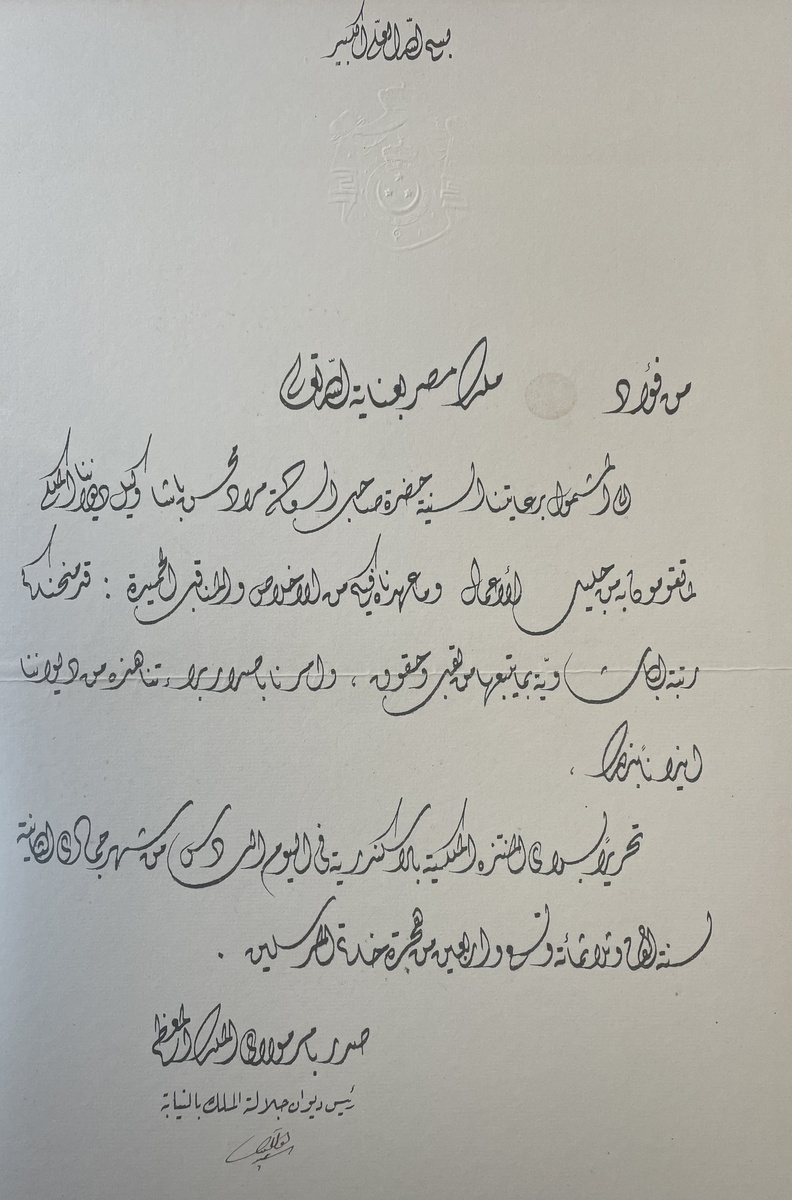 بسم الله العلي الكبير
من فؤاد ملك مصر بعناية الله تعالى
الى المشمول برعايتنا السنية حضرة صاحب السعادة مراد محسن باشا وكيل ديواننا الملكي
لما تقومون به من جليل الأعمال وما عهدناه فيكم من الاخلاص والمناقب الحميدة : قد منحناكم
رتبة الباشوية بما يتبعها من لقب وحقوق ، وامرنا باصدار براءتنا هذه من ديواننا
ايذانا بذلك .
تحريرًا بسراي المنتزه الملكية بالاسكندرية في اليوم السادس من شهر جمادى الثانية
لسنة الف وثلاثمائة وتسع واربعين من هجرة خاتم المرسلين .
صدر بامر مولاي الملك المعظم
رئيس ديوان جلالة الملك بالنيابة